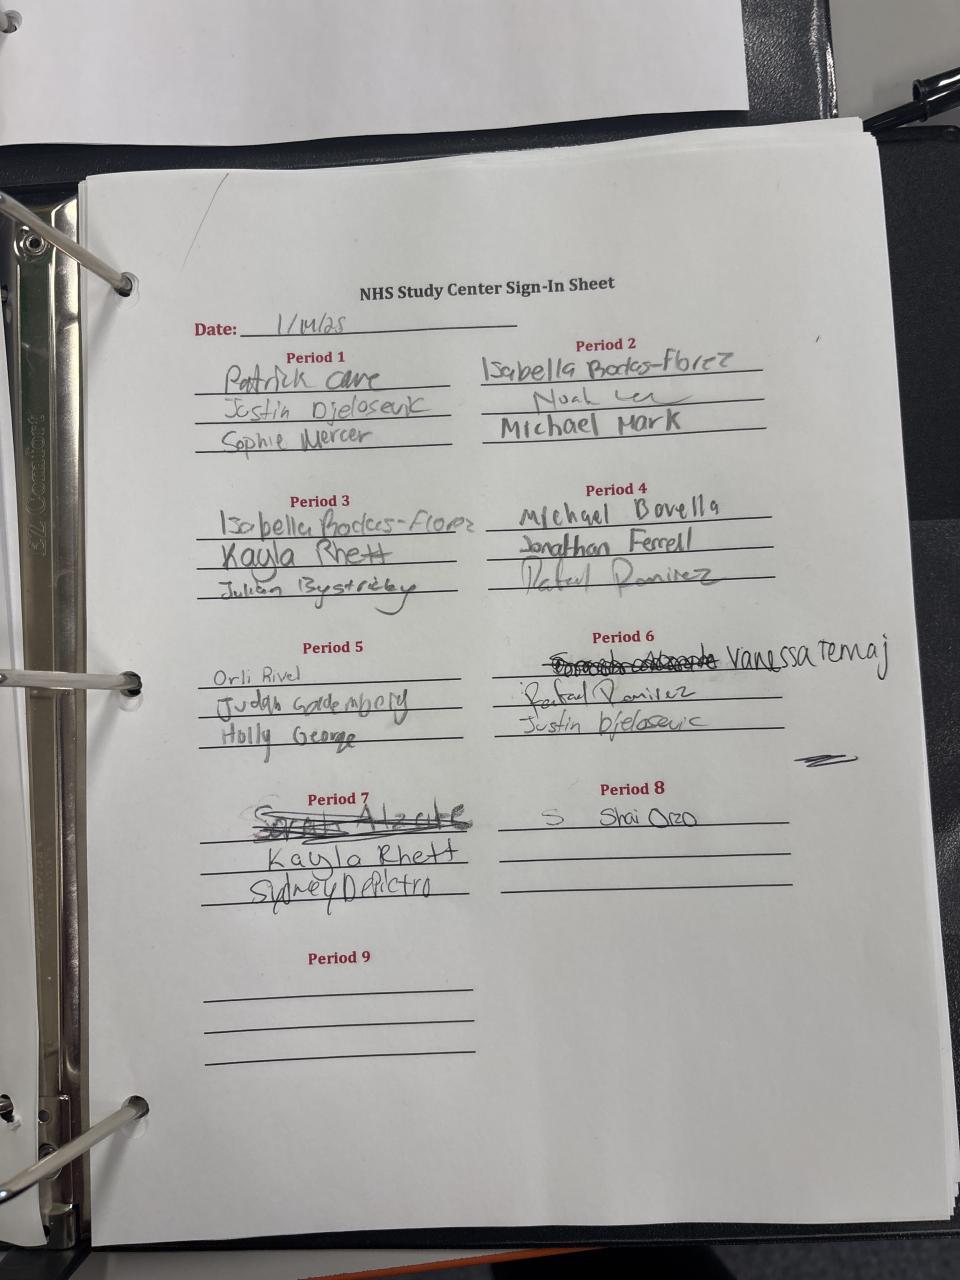 NHS Study Center Sign-In Sheet
Date: 1/14/25
Period 1
Patrick Cane
Justin Djelosevic
Sophie Mercer
Period 2
Isabella Bodas-Florez
Noah
Michael Mark
Period 3
Isabella Bodas-Florez
Kayla Rhett
Julian Bystricky
Period 4
Michael Bovella
Jonathan Ferrell
Rafael Ramirez
Period 5
Orli Rivel
Judah Goldemberg
Holly George
Period 6
Vanessa Temaj
Rafael Ramirez
Justin Djelosevic
Period 7
Sarah Alzate
Kayla Rhett
Sydney DePietro
Period 8
S Shai Orzo
Period 9
EZ Comfort